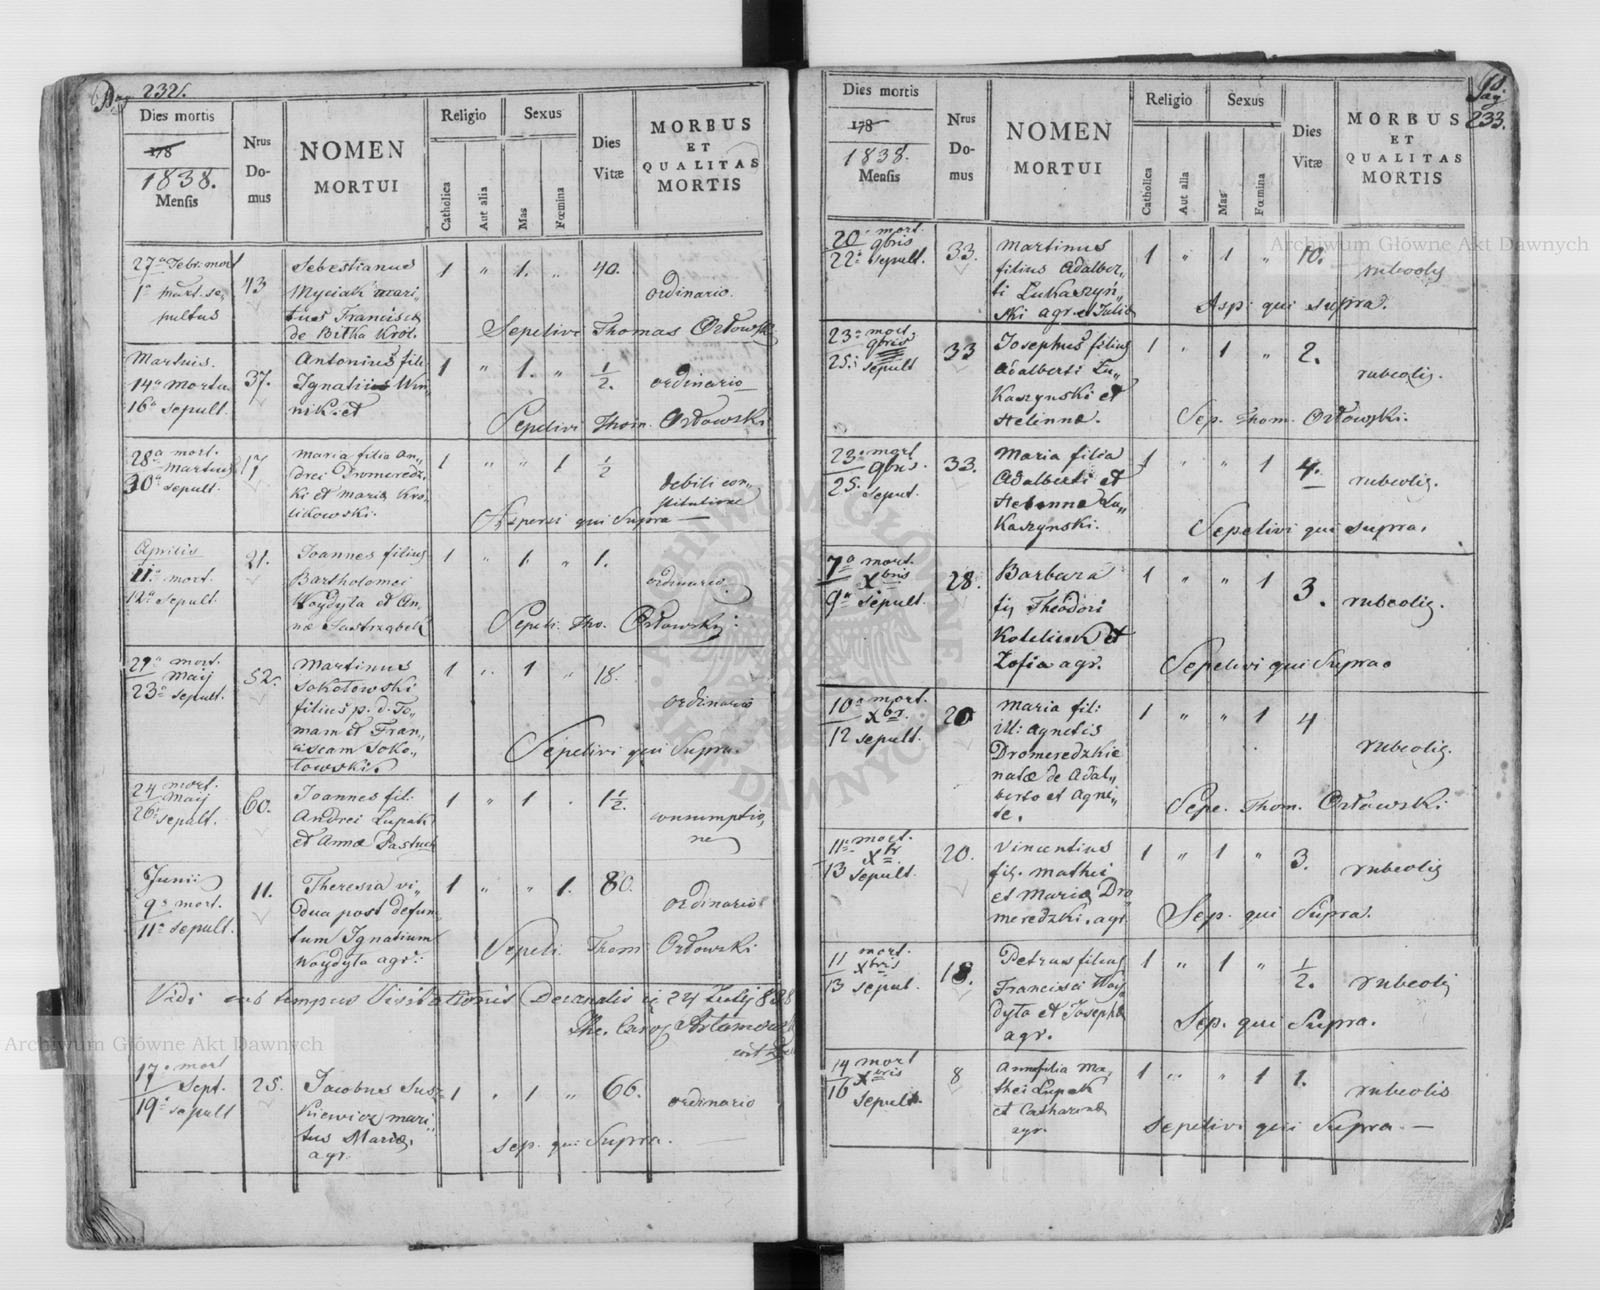 Pag 232.
Dies mortis
178
1838.
Mensis
Nrus
Do-
mus
NOMEN
MORTUI
Religio
Catholica
Aut alia
Sexus
Mas
Fœmina
Dies
Vitæ
MORBUS
ET
QUALITAS
MORTIS
27a Febr. mort
1a Mart. se,,
pultus
43
Sebestianus
Myciak mari,,
tus Francisca
de Bitka Król.
1 " 1. " 40.
ordinario.
Sepelivi Thomas Orłowski
Martius.
14a mortu
16a sepult.
37.
Antonius fili
Ignatius Win,,
nik. et
1 " 1. " 1/2.
ordinario
Sepelivi Thom. Orłowski
28a mort.
Martius
30a sepult.
17
Maria filia An,,
drei Dromeredz,,
ki et Maria Kro,,
likowski.
1 " " 1 1/2
debili con,,
stitutione
Aspersi qui Supra —
Aprilis
11a mort.
12a sepult.
21.
Joannes filius
Bartholomei
Woydyta et An,,
næ Jastrząbek
1 " 1. " 1.
ordinario.
Sepeli. Tho. Orłowski.
mort.
Maij
23a sepult.
52.
Martinus
Sokołowski
filius p. d. To,,
mam et Fran,,
ciscam Soko,,
łowski.
1 " 1 " 18.
ordinario
Sepelivi qui Supra.
24 mort.
Maij
26 sepult.
60.
Joannes fil:
Andrei Lupak
et Anna Pastuch
1 " 1 " 1 1/2.
consumptio,,
ne
Junii
9a mort.
11a sepult.
11.
Theresia vi,,
dua post defun,,
tum Ignatium
Woydyta agr.:
1 " " 1. 80.
ordinario
Sepeli. Thom Orłowski
Vidi sub tempus Visitationis Decanalis
24 Julij 838
17a mort
Sept.
19a sepult
25.
Jacobus Sus,,
kiewicz mari,,
tus Maria,
agr.
1 " 1 " 66.
ordinario
Sep. qui Supra. —
Pag.
233.
Dies mortis
178
1838.
Mensis
Nrus
Do-
mus
NOMEN
MORTUI
Religio
Catholica
Aut alia
Sexus
Mas
Fœmina
Dies
Vitæ
MORBUS
ET
QUALITAS
MORTIS
20a mort.
9bris
22a sepult.
33.
Martinus
filius Adalber,,
ti Lukaszyń,,
ski agr. et Julia
1 " 1 " 10.
rubeolis
Asp: qui supra.
23a mort.
9bris
25a sepult
33
Josephus filius
Adalberti Lu,,
kaszynski et
Helenna.
1 " 1 " 2.
rubeolis.
Sep. Thom. Orłowski.
23a mort
9bris.
25. sepult.
33.
Maria filia
Adalberti et
Helenna Lu,,
kaszynski.
1 " " 1 4.
rubeolis.
Sepelivi qui supra.
7a mort.
Xbris
9a sepult.
28.
Barbara
fil Theodori
et
Zofia agr.
1 " " 1 3.
rubeolis.
Sepelivi qui Supra.
10a mort.
Xbr.
12 sepult.
20
Maria fil:
ill: Agnetis
Dromeredzkie
natæ de Adal,,
berto et Agne,,
te.
1 " " 1 4
rubeolis.
Sepe. Thom. Orłowski
11a mort.
Xbr
13 sepult.
20.
Vincentius
fil. Mathei
et Maria Dro
meredzki. agr.
1 " 1 " 3.
rubeolis
Sep. qui Supra.
11 mort.
Xbris
13 sepul.
18.
Petrus filius
Francisci Woy,,
dyta et Josepha
agr.
1 " 1 " 1/2.
rubeolis
Sep. qui Supra.
14 mort
Xbris
16 sepult.
8
Anna filia Ma,,
thei Lupak
et Catharina
agr.
1 " " 1 1.
rubeolis
Sepelivi qui Supra. —
Archiwum Główne Akt Dawnych
Archiwum Główne Akt Dawnych
ARCHIWUM GŁÓWNE AKT DAWNYCH